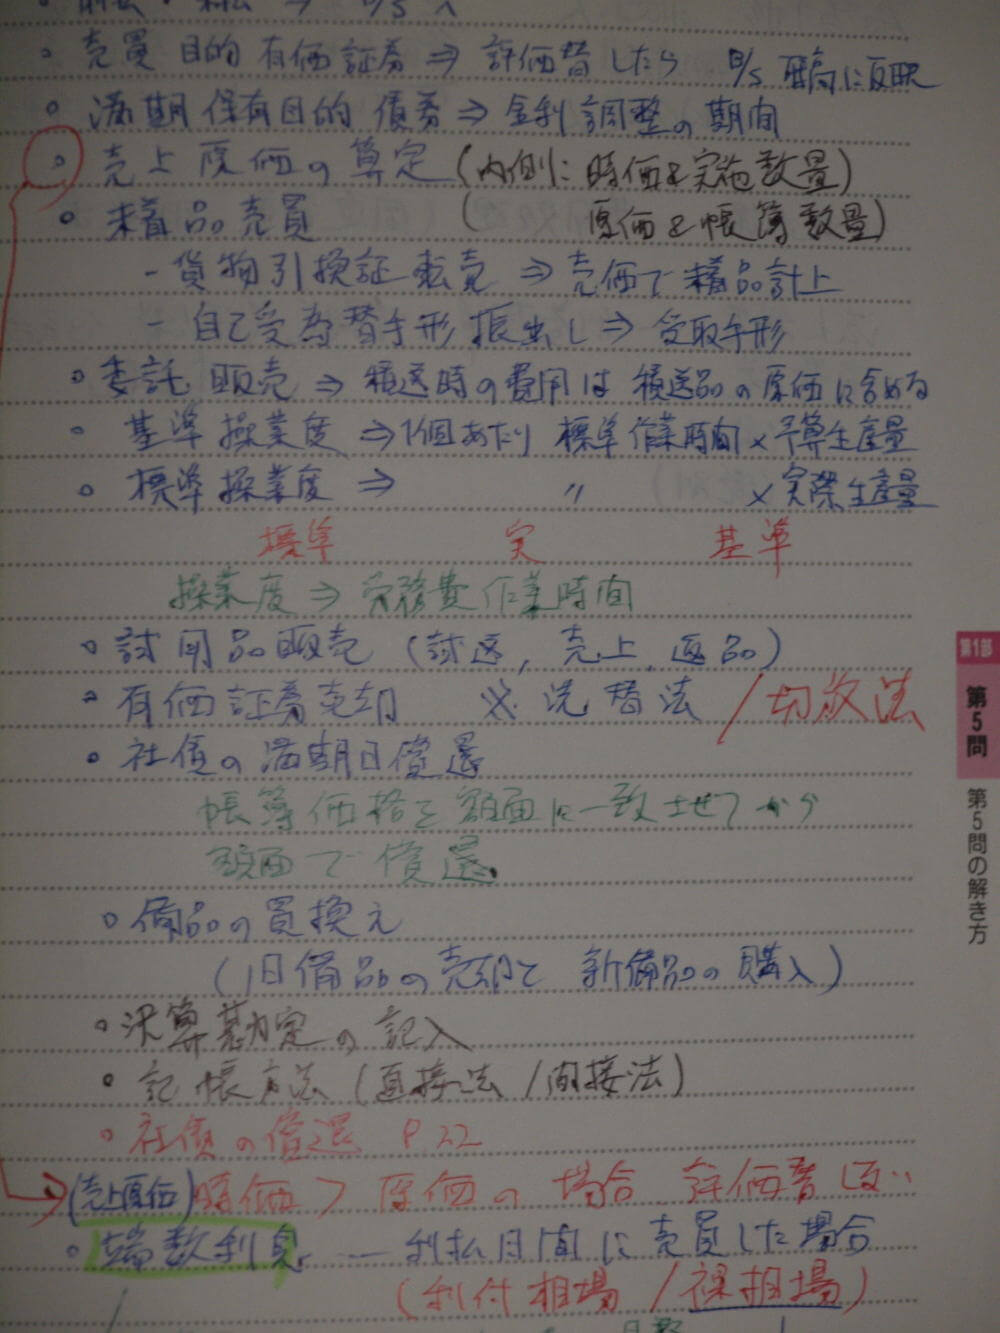 売買目的有価証券 ⇒ 評価替したら B/S 価額に反映
満期保有目的債券 ⇒ 金利調整の期間
売上原価の算定 (内側に時価&実施数量)
(原価&帳簿数量)
未着品売買
- 貨物引換証転売 ⇒ 売価で未着品計上
- 自己受為替手形振出し ⇒ 受取手形
委託販売 ⇒ 積送時の費用は積送品の原価に含める
基準操業度 ⇒ 1個あたり標準作業時間×予算生産量
標準操業度 ⇒ 〃 ×実際生産量
標準 実 基準
操業度 ⇒ 労務費作業時間
試用品販売 (試送, 売上, 返品)
有価証券売却 ※洗替法 /切放法
社債の満期日償還
帳簿価格を額面に一致させてから
額面で償還
備品の買換え
(旧備品の売却と新備品の購入)
決算勘定の記入
記帳方法 (直接法/間接法)
社債の償還 P.22
(売上原価) 時価>原価の場合 評価替しない
端数利息 --- 利払日間に売買した場合
(利付相場/裸相場)
第1部
第5問
第5問の解き方